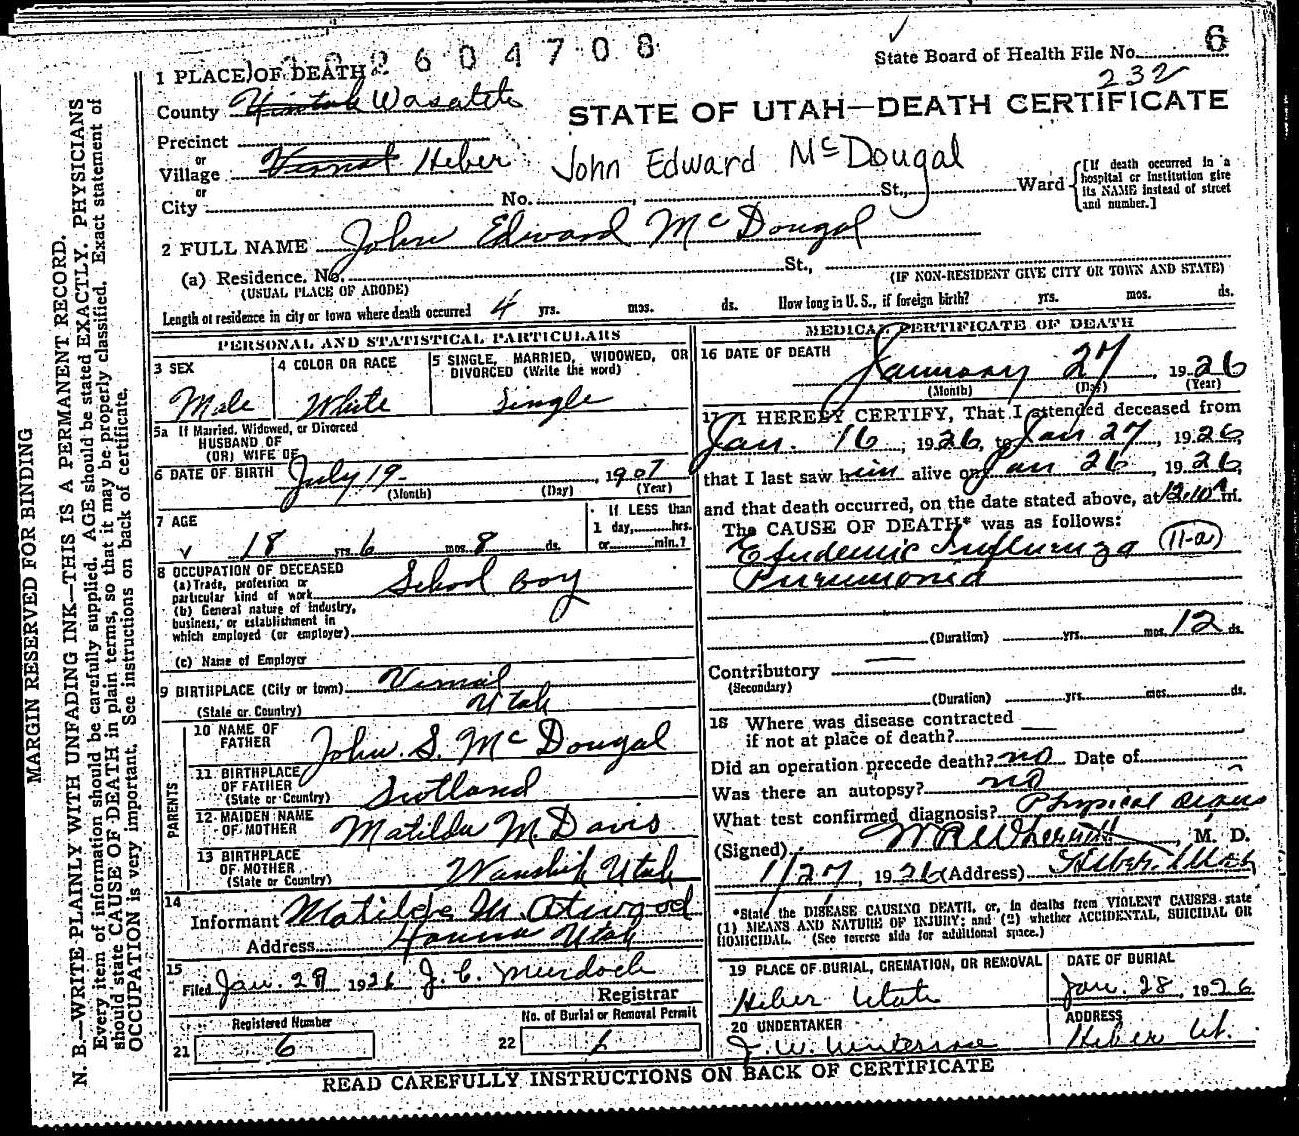 2604708
6
State Board of Health File No.
232
1 PLACE OF DEATH
County Uintah Wasatch
STATE OF UTAH—DEATH CERTIFICATE
Precinct
or
Village Vernal Heber
John Edward McDougal
or
City No. St., Ward
[If death occurred in a hospital or institution give its NAME instead of street and number.]
2 FULL NAME John Edward McDougal
(a) Residence. No. St.,
(USUAL PLACE OF ABODE)
(IF NON-RESIDENT GIVE CITY OR TOWN AND STATE)
Length of residence in city or town where death occurred 4 yrs. mos. ds. How long in U. S., if foreign birth? yrs. mos. ds.
PERSONAL AND STATISTICAL PARTICULARS
3 SEX
Male
4 COLOR OR RACE
White
5 SINGLE, MARRIED, WIDOWED, OR
DIVORCED (Write the word)
Single
5a If Married, Widowed, or Divorced
HUSBAND OF
(OR) WIFE OF
6 DATE OF BIRTH July 19 1907
(Month) (Day) (Year)
7 AGE
18 yrs. 6 mos. 8 ds.
If LESS than
1 day, hrs.
or min.?
8 OCCUPATION OF DECEASED
(a) Trade, profession or
particular kind of work School Boy
(b) General nature of industry,
business, or establishment in
which employed (or employer)
(c) Name of Employer
9 BIRTHPLACE (City or town) Vernal
(State or Country) Utah
PARENTS
10 NAME OF
FATHER John S. McDougal
11 BIRTHPLACE
OF FATHER
(State or Country) Scotland
12 MAIDEN NAME
OF MOTHER Matilda M. Davis
13 BIRTHPLACE
OF MOTHER
(State or Country) Wanship Utah
14
Informant Matilda M. Atwood
Address Hanna Utah
15
Filed Jan. 29 1926 J. C. Murdoch
Registrar
Registered Number
21 6
No. of Burial or Removal Permit
22
MEDICAL CERTIFICATE OF DEATH
16 DATE OF DEATH
January 27 1926
(Month) (Day) (Year)
17 I HEREBY CERTIFY, That I attended deceased from
Jan. 16, 1926, to Jan 27, 1926,
that I last saw him alive on Jan 26, 1926,
and that death occurred, on the date stated above, at 12.10 A m.
The CAUSE OF DEATH* was as follows:
Epidemic Influenza (11-a)
Pneumonia
(Duration) yrs. mos. 12 ds.
Contributory
(Secondary)
(Duration) yrs. mos. ds.
18 Where was disease contracted
if not at place of death?
Did an operation precede death? no Date of
Was there an autopsy? no
What test confirmed diagnosis? Physical signs
(Signed) M. D.
1/27, 1926 (Address) Heber, Utah
*State the DISEASE CAUSING DEATH, or, in deaths from VIOLENT CAUSES, state
(1) MEANS AND NATURE OF INJURY; and (2) whether ACCIDENTAL, SUICIDAL OR
HOMICIDAL. (See reverse side for additional space.)
19 PLACE OF BURIAL, CREMATION, OR REMOVAL
Heber Utah
DATE OF BURIAL
Jan. 28, 1926
20 UNDERTAKER
J. W. Winterose
ADDRESS
Heber Ut.
READ CAREFULLY INSTRUCTIONS ON BACK OF CERTIFICATE
MARGIN RESERVED FOR BINDING
N. B.—WRITE PLAINLY WITH UNFADING INK—THIS IS A PERMANENT RECORD.
Every item of information should be carefully supplied. AGE should be stated EXACTLY. PHYSICIANS
should state CAUSE OF DEATH in plain terms, so that it may be properly classified. Exact statement of
OCCUPATION is very important. See instructions on back of certificate.